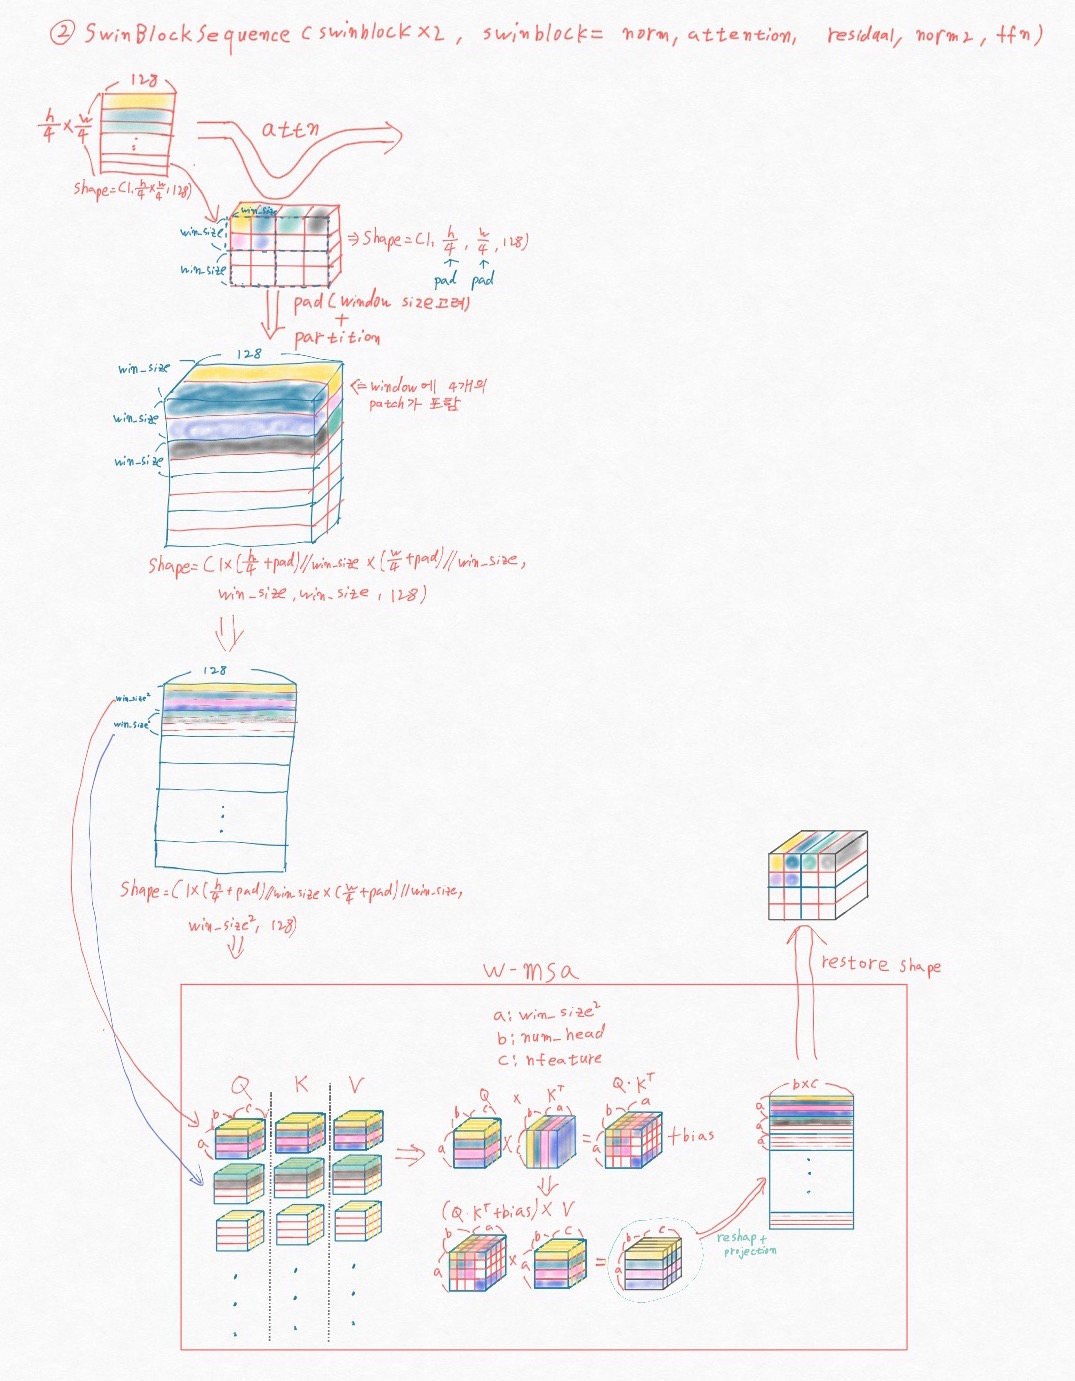 ② SwinBlockSequence (swinblock×2, swinblock= norm, attention, residual, norm2, ffn)
128
h/4 × w/4
attn
shape=(1, h/4 × w/4, 128)
win_size
win_size
win_size
⇒ shape=(1, h/4, w/4, 128)
↑ ↑
pad pad
pad (window size 고려)
+
partition
128
win_size
win_size
win_size
⇐ window에 4개의
patch가 포함
shape= (1×(h/4+pad)//win_size × (w/4+pad)//win_size,
win_size, win_size, 128)
128
win_size²
win_size²
shape=(1×(h/4+pad)//win_size×(w/4+pad)//win_size,
win_size², 128)
restore shape
w-msa
a: win_size²
b: num_head
c: nfeature
Q K V
b c
a
Q × Kᵀ Q·Kᵀ
b c b a b a
a × c = a +bias
(Q·Kᵀ+bias) × V
b a b c b c
a × a = a
reshap+
projection
b×c
a
a
a